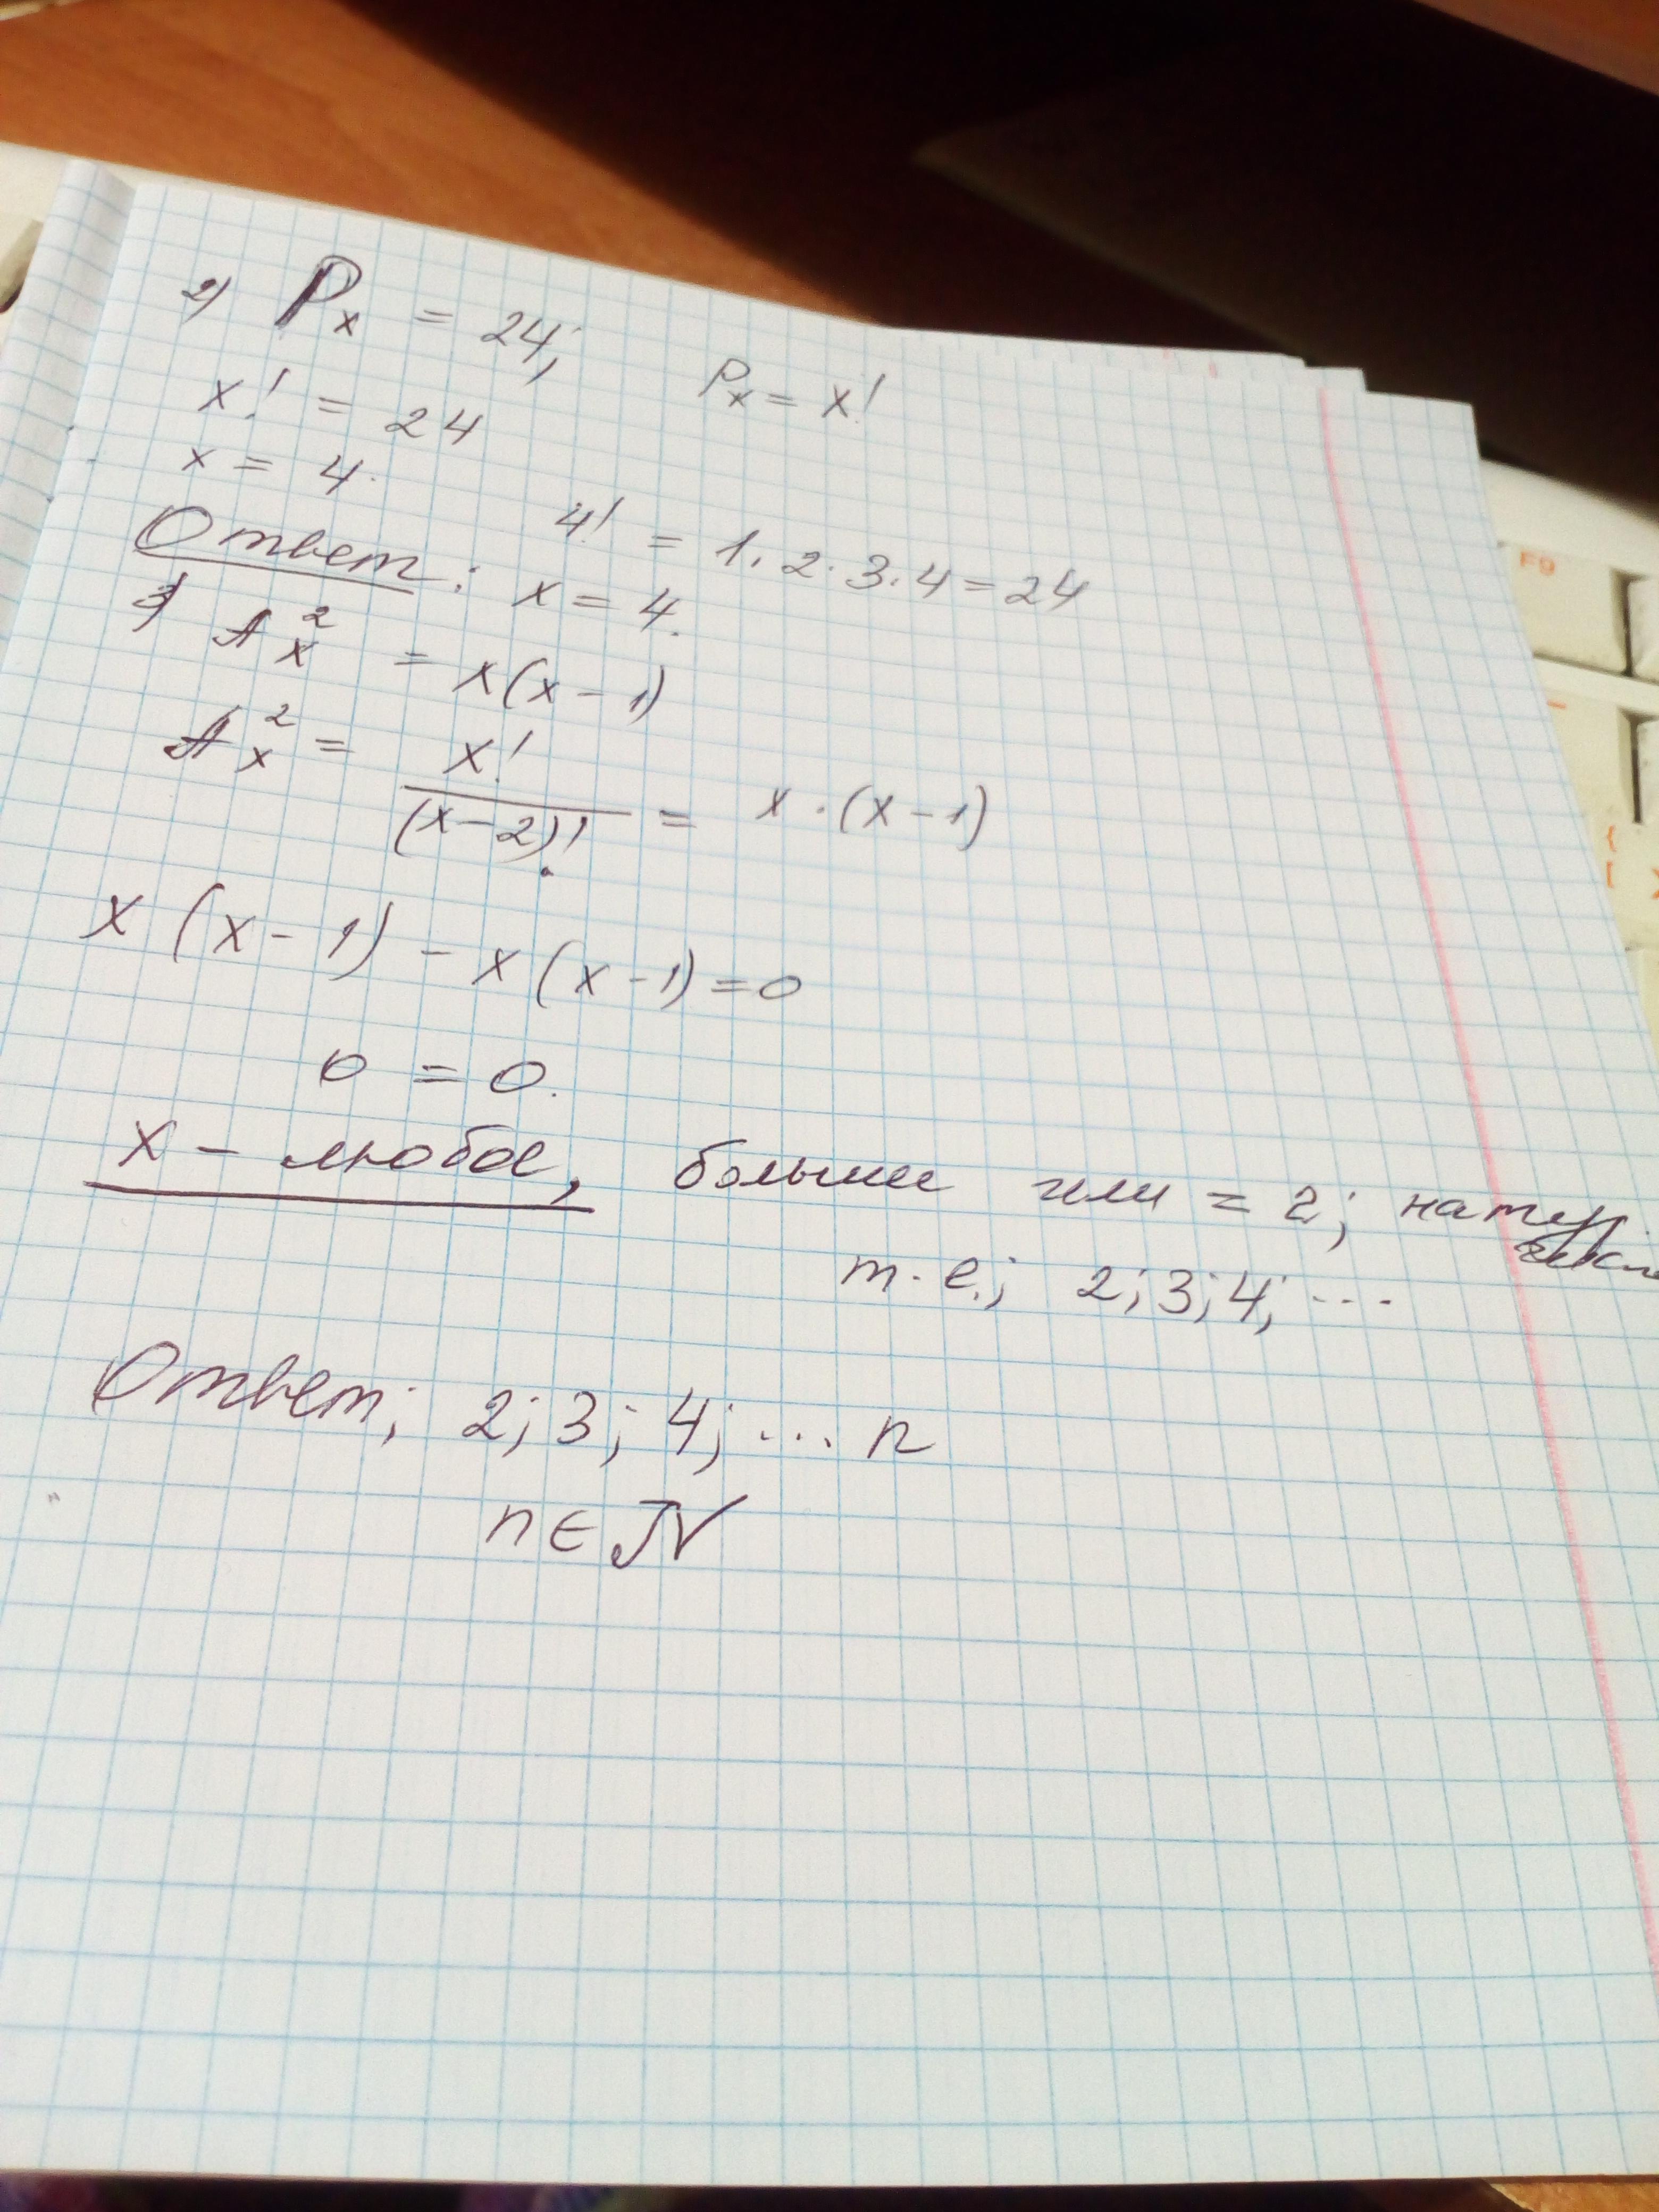 2) Pₓ = 24; Pₓ = x!
x! = 24
x = 4.
4! = 1·2·3·4=24
Ответ: x = 4.
3) Aₓ² = x(x-1)
Aₓ² = x!/(x-2)! = x·(x-1)
x(x-1) - x(x-1)=0
0 = 0.
x - любое, больше или = 2; натур.
т.е.; 2; 3; 4; ...
Ответ; 2; 3; 4; ... n
n∈N
F9
{
[